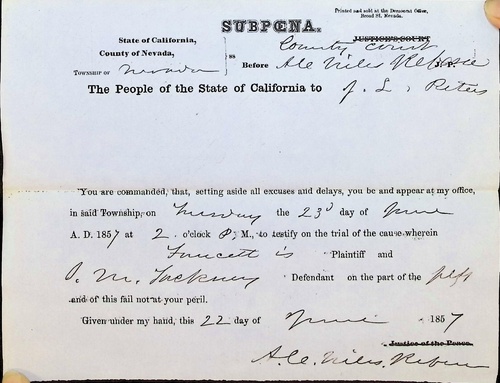 Printed and sold at the Democrat Office,
Broad St. Nevada.
SUBPŒNA.
State of California,
County of Nevada,
Township of Nevada
ss
JUSTICE'S COURT
County Court
Before A C Niles Referee J. P.
The People of the State of California to J. L. Peters
You are commanded, that, setting aside all excuses and delays, you be and appear at my office,
in said Township, on Tuesday the 23d day of June
A. D. 1857 at 2 o'clock P. M., to testify on the trial of the cause wherein
Fawcett is Plaintiff and
Defendant on the part of the Plff
and of this fail not at your peril.
Given under my hand, this 22 day of June 1857
Justice of the Peace.
A. C. Niles, Referee